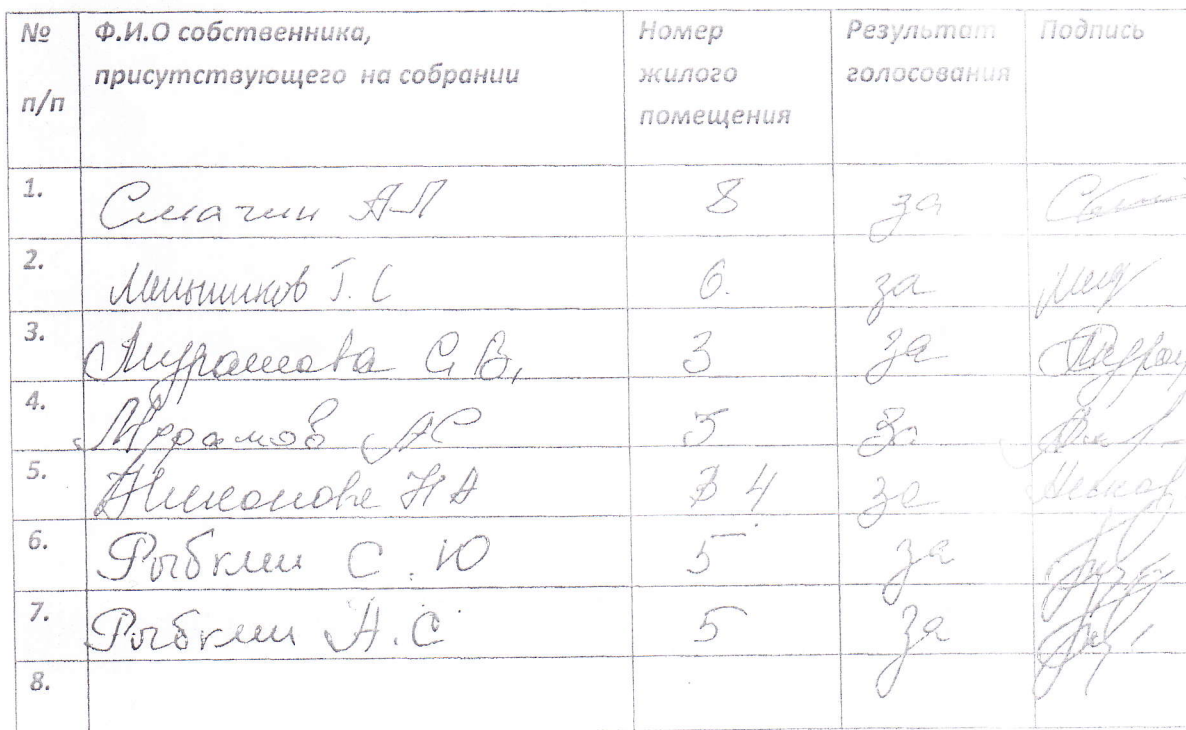 № п/п Ф.И.О собственника, присутствующего на собрании Номер жилого помещения Результат голосования Подпись
1. Смагин АП 8 за
2. Меньшиков Г. С 6. за
3. Мурашова С. В, 3 за
4. АС 3 за
5. Никонова НА 4 за
6. Рыбкин С. Ю 5 за
7. Рыбкин А. С 5 за
8.